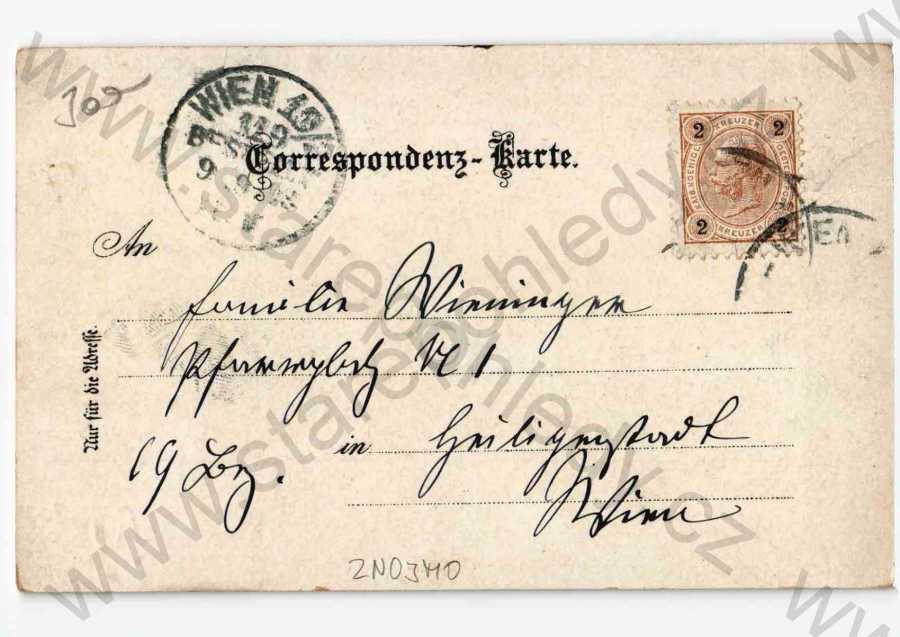 102
WIEN 19/
9
Correspondenz-Karte.
2 KREUZER 2
2 KREUZER 2
WIEN
An
Familie Wieninger
Pfarrplatz N 1
19 Bez. in Heiligenstadt
Wien
Nur für die Adresse.
ZNOJMO
www.starepohledy.cz
www.starepohledy.cz